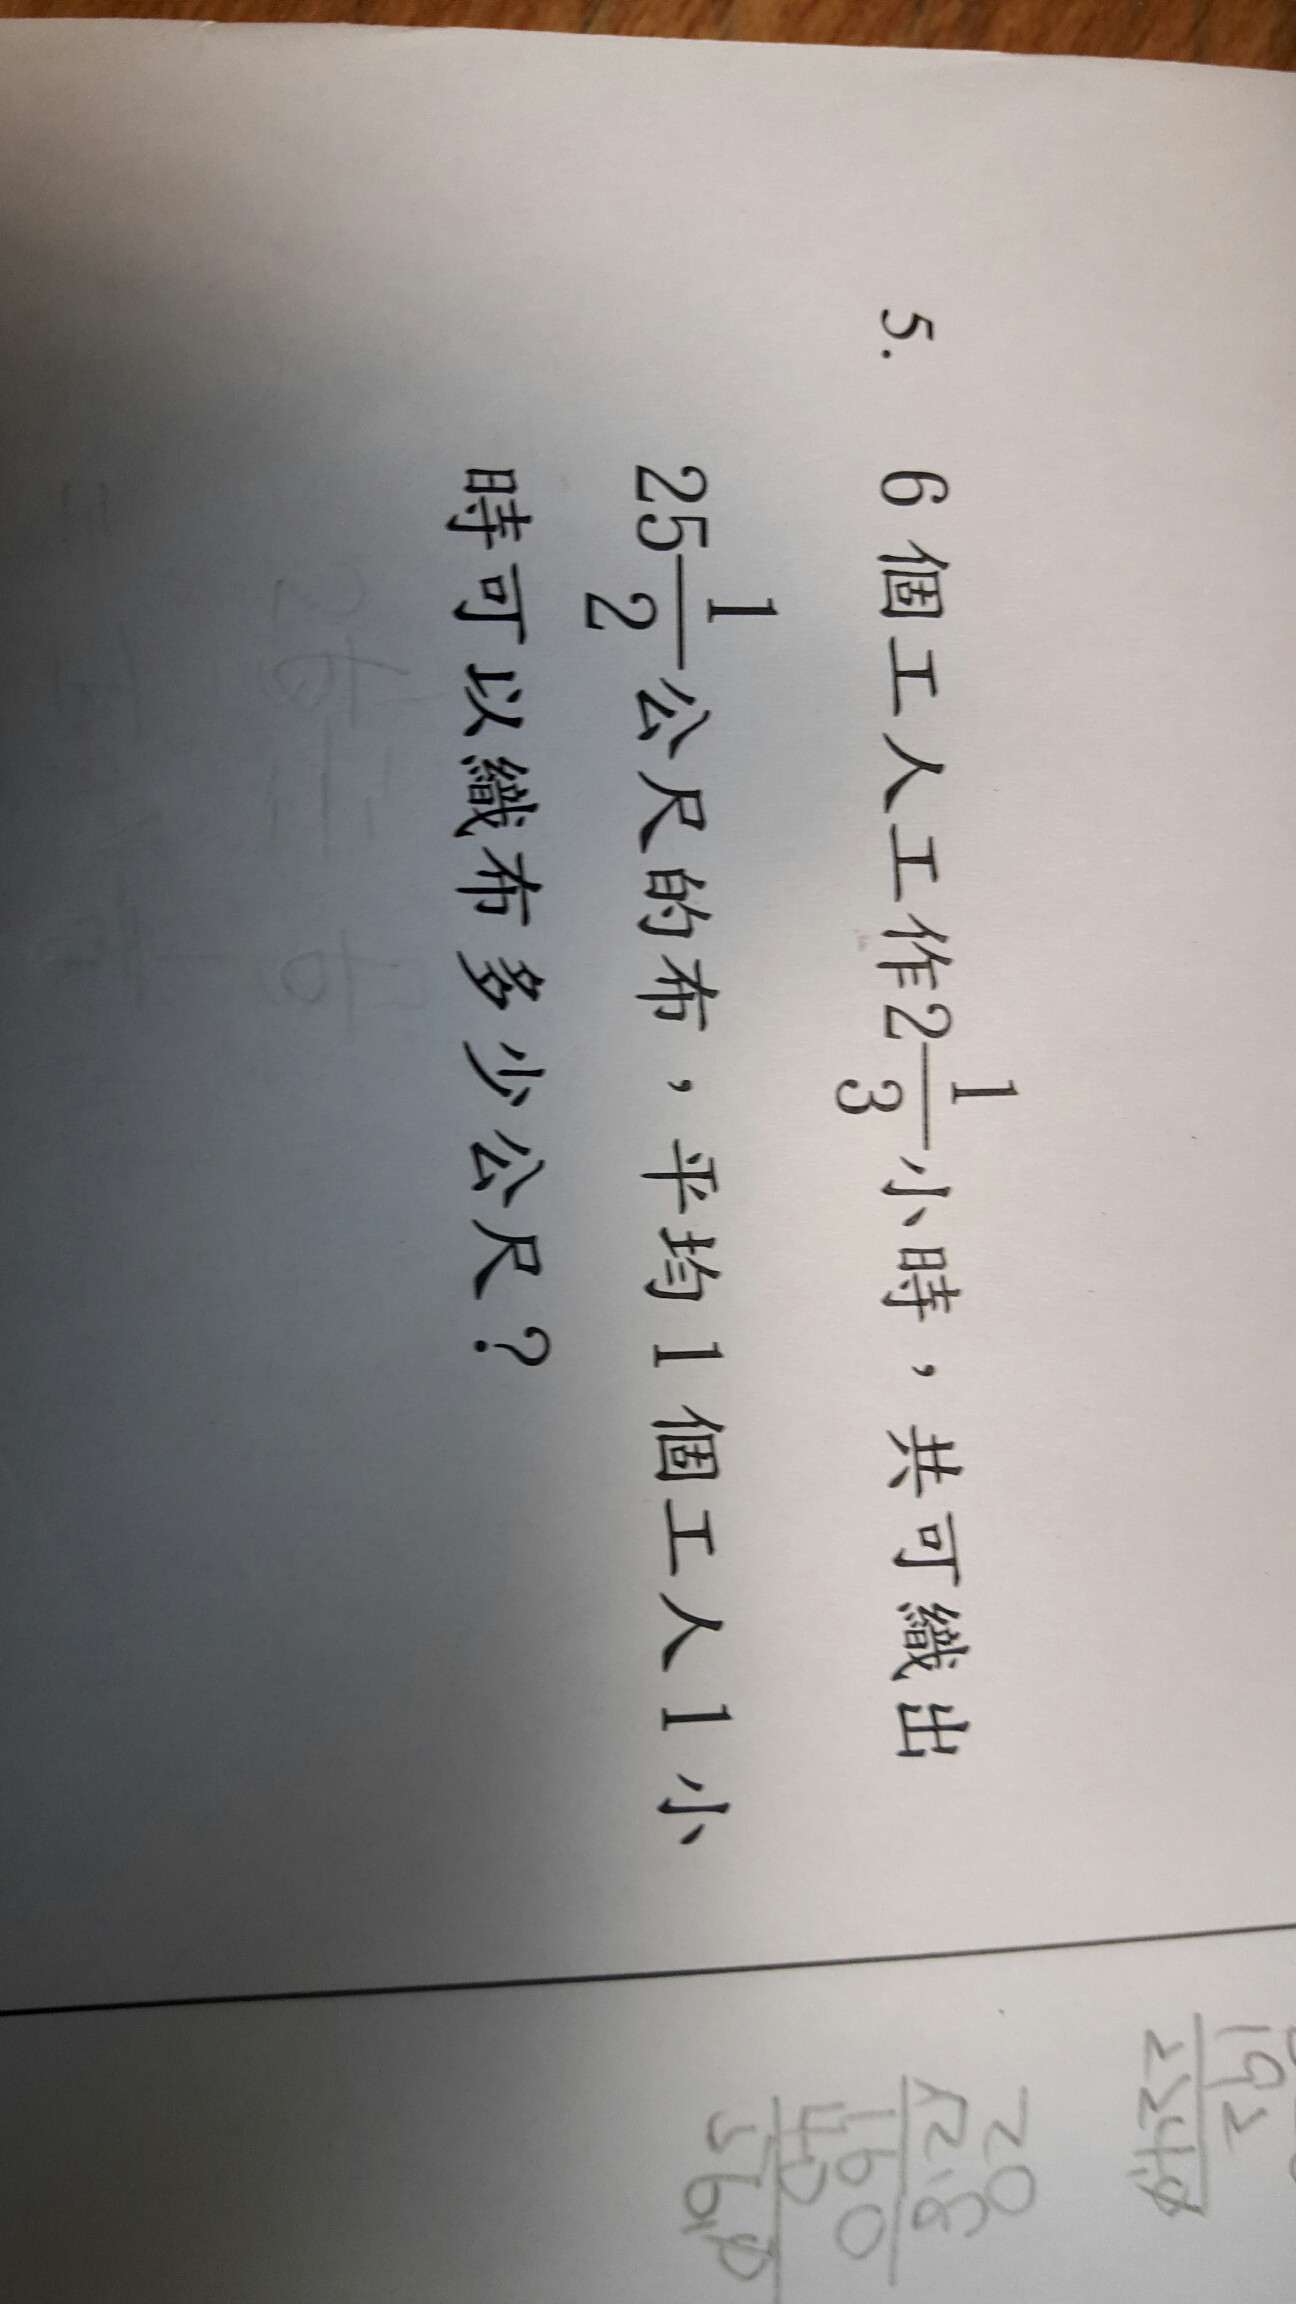 5. 6個工人工作2 1/3小時，共可織出
25 1/2公尺的布，平均1個工人1小
時可以織布多少公尺？
192
20
28
160